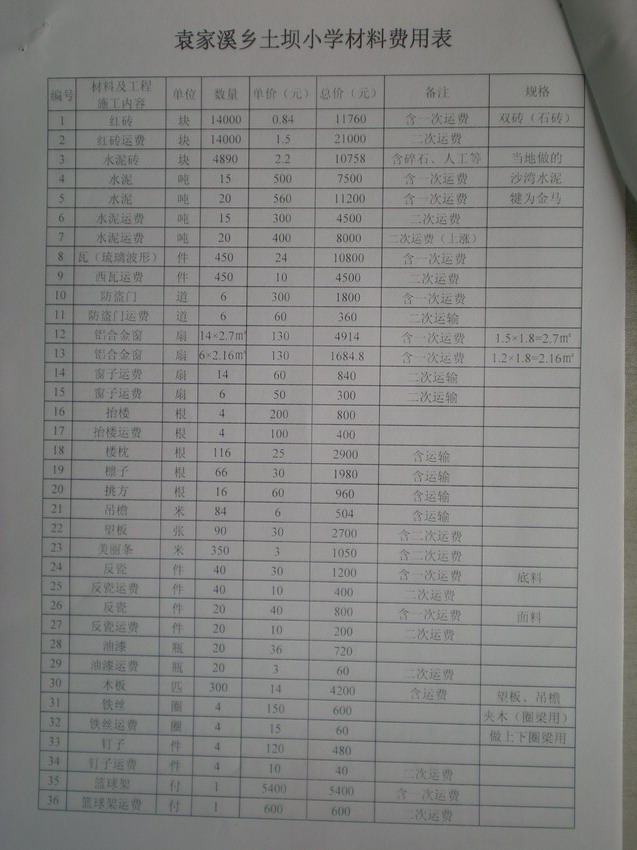 袁家溪乡土坝小学材料费用表
编号 材料及工程施工内容 单位 数量 单价（元） 总价（元） 备注 规格
1 红砖 块 14000 0.84 11760 含一次运费 双砖（石砖）
2 红砖运费 块 14000 1.5 21000 二次运费
3 水泥砖 块 4890 2.2 10758 含碎石、人工等 当地做的
4 水泥 吨 15 500 7500 含一次运费 沙湾水泥
5 水泥 吨 20 560 11200 含一次运费 犍为金马
6 水泥运费 吨 15 300 4500 二次运费
7 水泥运费 吨 20 400 8000 二次运费（上涨）
8 瓦（琉璃波形） 件 450 24 10800 含一次运费
9 西瓦运费 件 450 10 4500 二次运费
10 防盗门 道 6 300 1800 含一次运费
11 防盗门运费 道 6 60 360 二次运输
12 铝合金窗 扇 14×2.7㎡ 130 4914 含一次运费 1.5×1.8=2.7㎡
13 铝合金窗 扇 6×2.16㎡ 130 1684.8 含一次运费 1.2×1.8=2.16㎡
14 窗子运费 扇 14 60 840 二次运输
15 窗子运费 扇 6 50 300 二次运输
16 抬楼 根 4 200 800
17 抬楼运费 根 4 100 400
18 楼枕 根 116 25 2900 含运输
19 檩子 根 66 30 1980 含运输
20 挑方 根 16 60 960 含运输
21 吊檐 米 84 6 504 含运输
22 望板 张 90 30 2700 含二次运费
23 美丽条 米 350 3 1050 含二次运费
24 反瓷 件 40 30 1200 含一次运费 底料
25 反瓷运费 件 40 10 400 二次运费
26 反瓷 件 20 40 800 含一次运费 面料
27 反瓷运费 件 20 10 200 二次运费
28 油漆 瓶 20 36 720
29 油漆运费 瓶 20 3 60 二次运费
30 木板 匹 300 14 4200 含运费 望板、吊檐
31 铁丝 圈 4 150 600 夹木（圈梁用）
32 铁丝运费 圈 4 15 60 做上下圈梁用
33 钉子 件 4 120 480
34 钉子运费 件 4 10 40 二次运费
35 篮球架 付 1 5400 5400 含一次运费
36 篮球架运费 付 1 600 600 二次运费